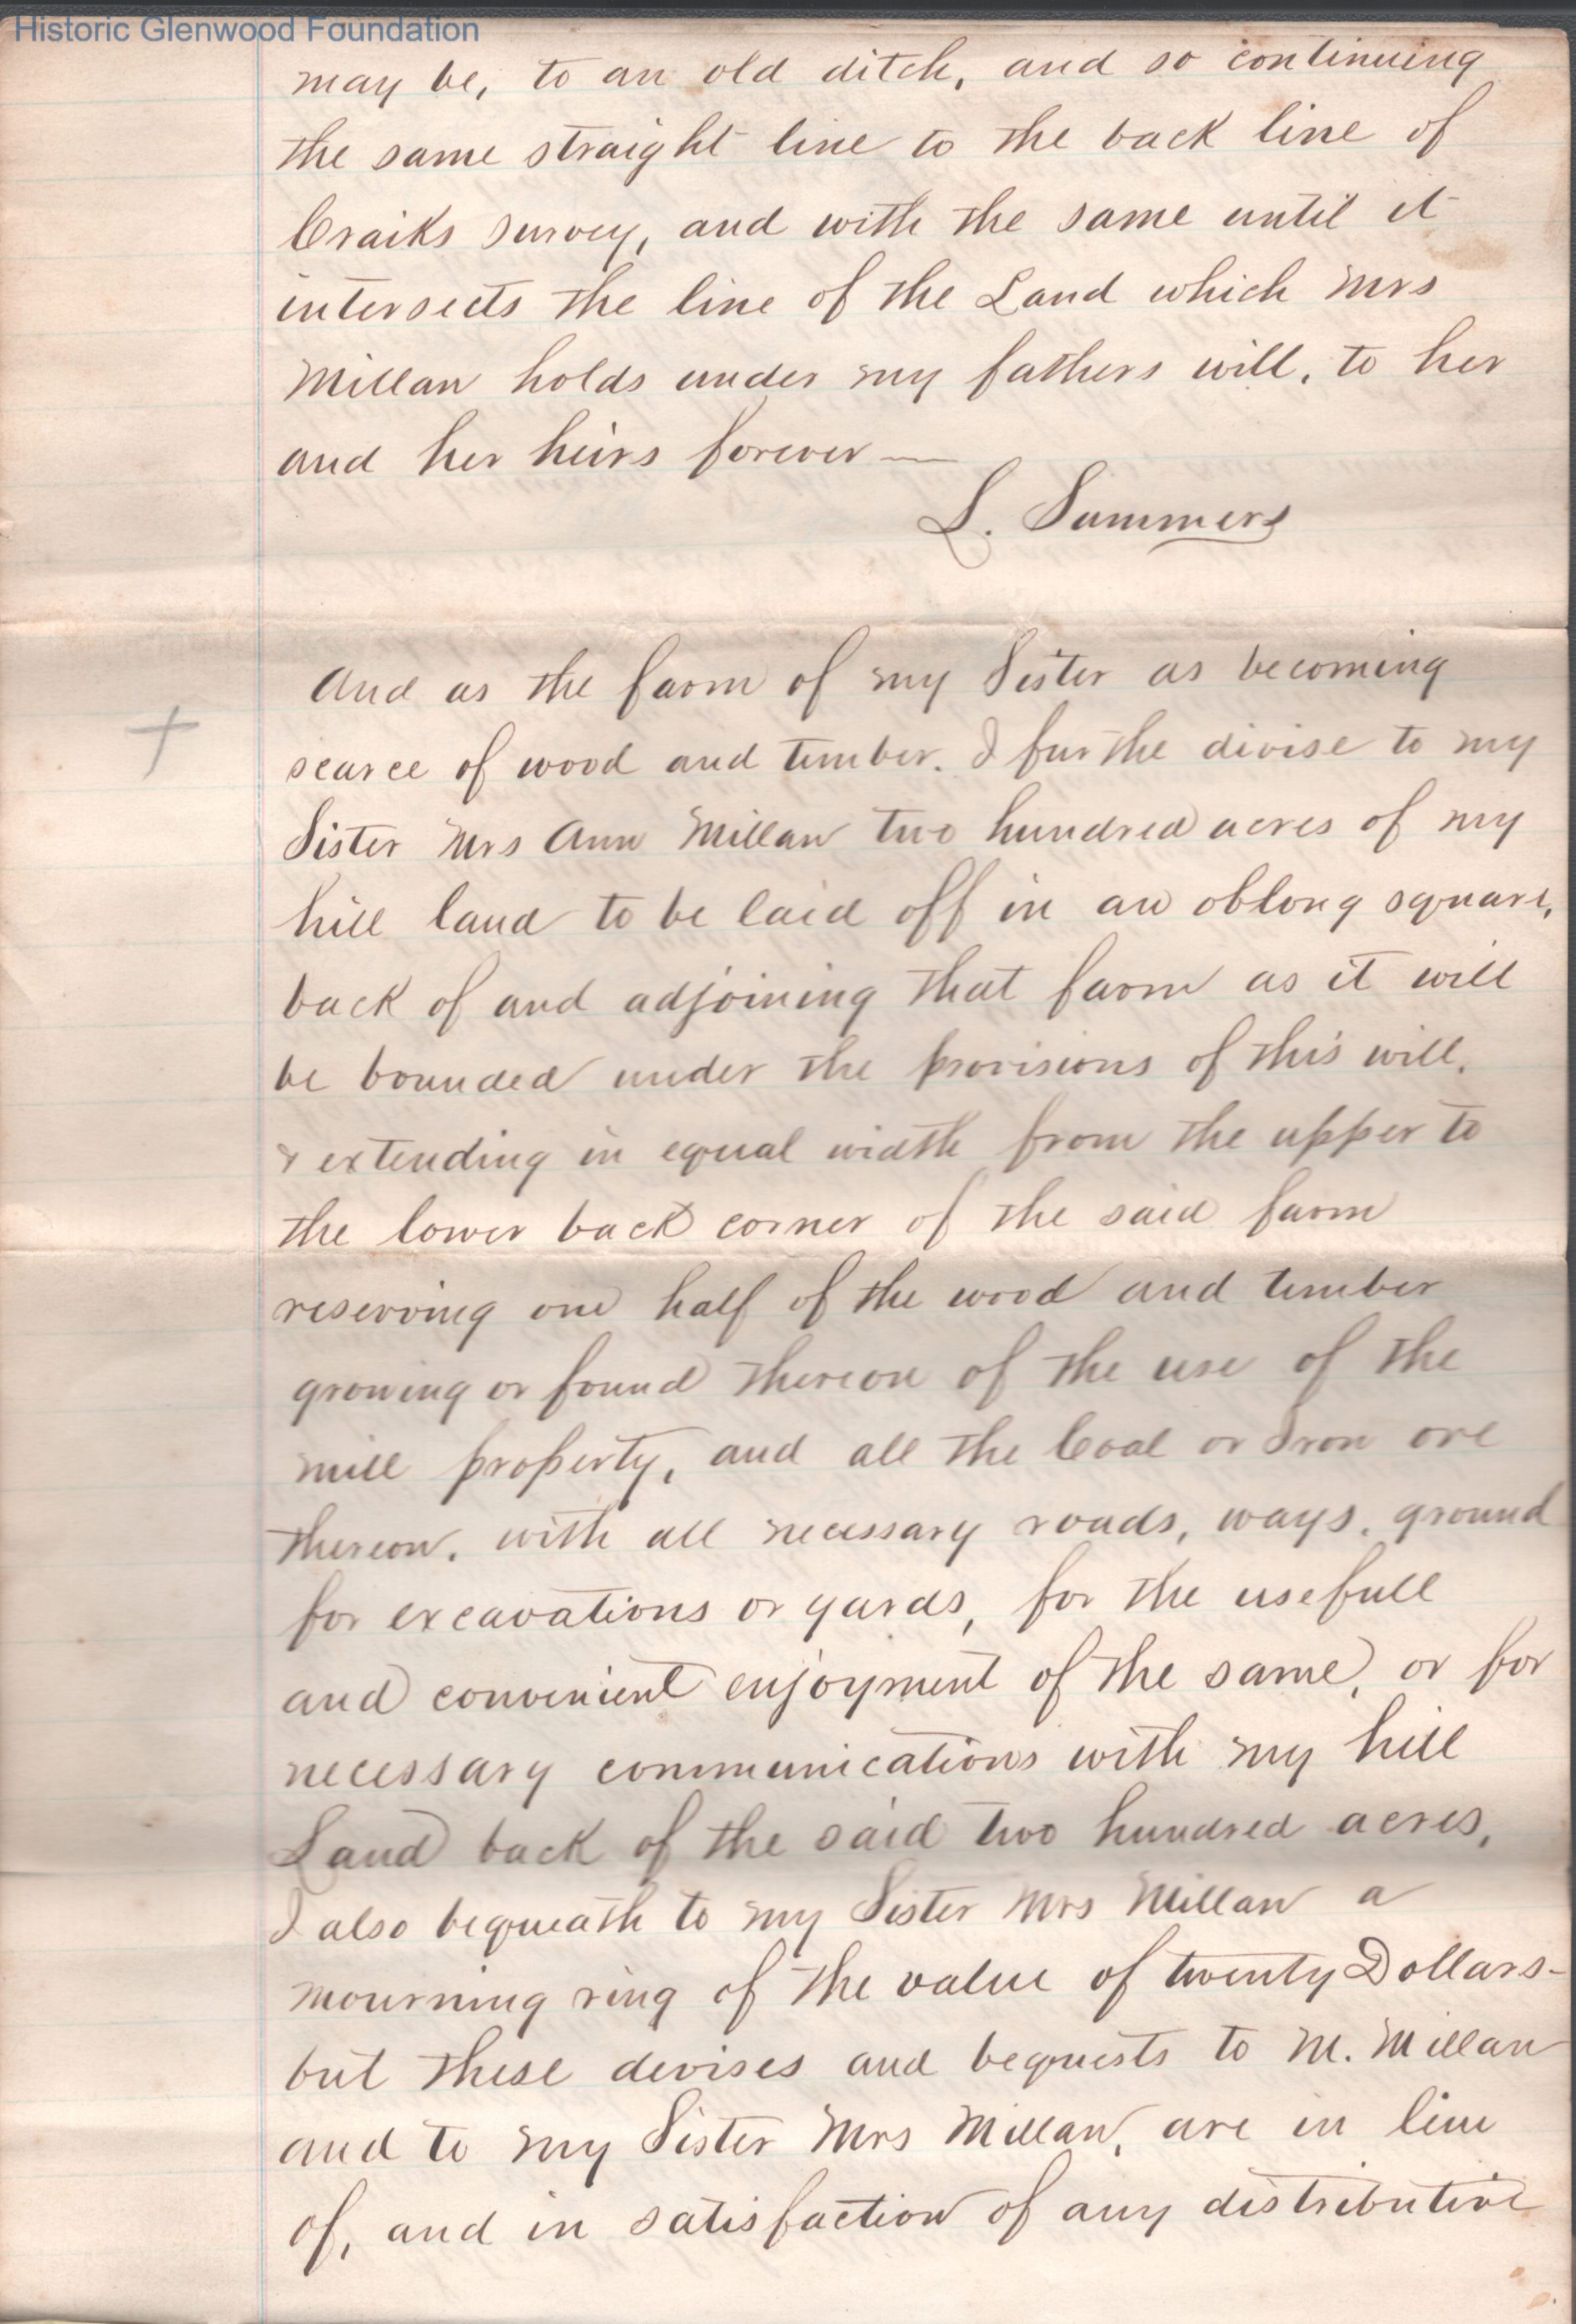 Historic Glenwood Foundation
may be, to an old ditch, and so continuing
the same straight line to the back line of
Craiks survey, and with the same until it
intersects the line of the Land which Mrs
Millan holds under my fathers will, to her
and her heirs forever —
L. Summers
And as the farm of my Sister as becoming
scarce of wood and timber. I furthe divise to my
Sister Mrs Ann Millan two hundred acres of my
hill land to be laid off in an oblong square,
back of and adjoining that farm as it will
be bounded under the provisions of this will,
& extending in equal width from the upper to
the lower back corner of the said farm
reserving one half of the wood and timber
growing or found thereon of the use of the
mill property, and all the Coal or Iron ore
thereon, with all necessary roads, ways, ground
for excavations or yards, for the usefull
and convenient enjoyment of the same, or for
necessary communications with my hill
Land back of the said two hundred acres,
I also bequeath to my Sister Mrs Millan a
mourning ring of the value of twenty Dollars-
but these devises and bequests to M. Millan
and to my Sister Mrs Millan, are in lieu
of, and in satisfaction of any distributive